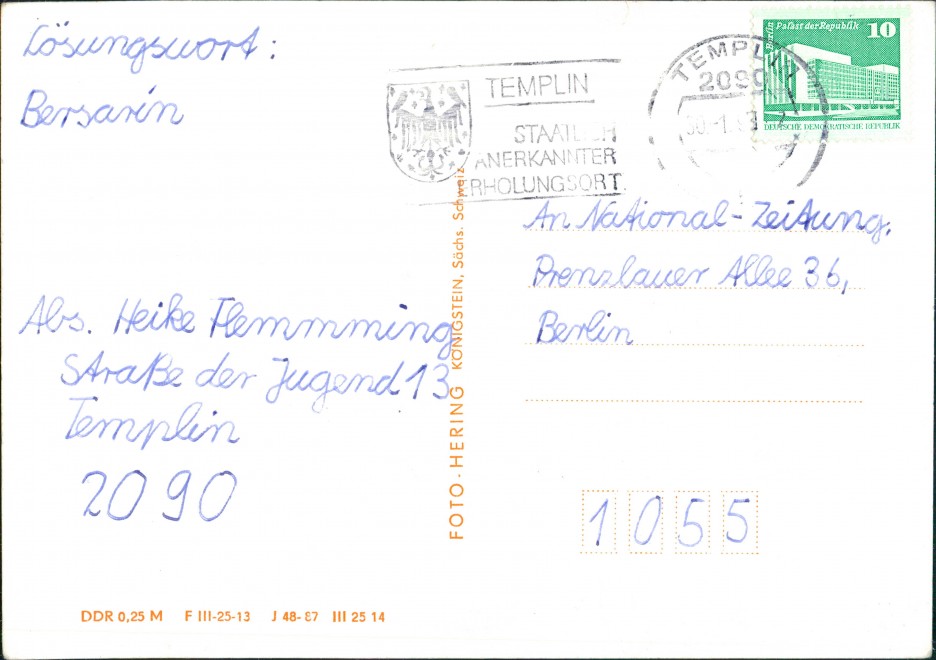 Lösungswort:
Bersarin
Abs. Heike Flemmming
Straße der Jugend 13
Templin
2090
TEMPLIN
STAATLICH
ANERKANNTER
ERHOLUNGSORT
TEMPLIN
2090
Berlin Palast der Republik 10
DEUTSCHE DEMOKRATISCHE REPUBLIK
An National-Zeitung,
Prenzlauer Allee 36,
Berlin
1055
FOTO-HERING KÖNIGSTEIN, Sächs. Schweiz
DDR 0,25 M F III-25-13 J 48-87 III 25 14